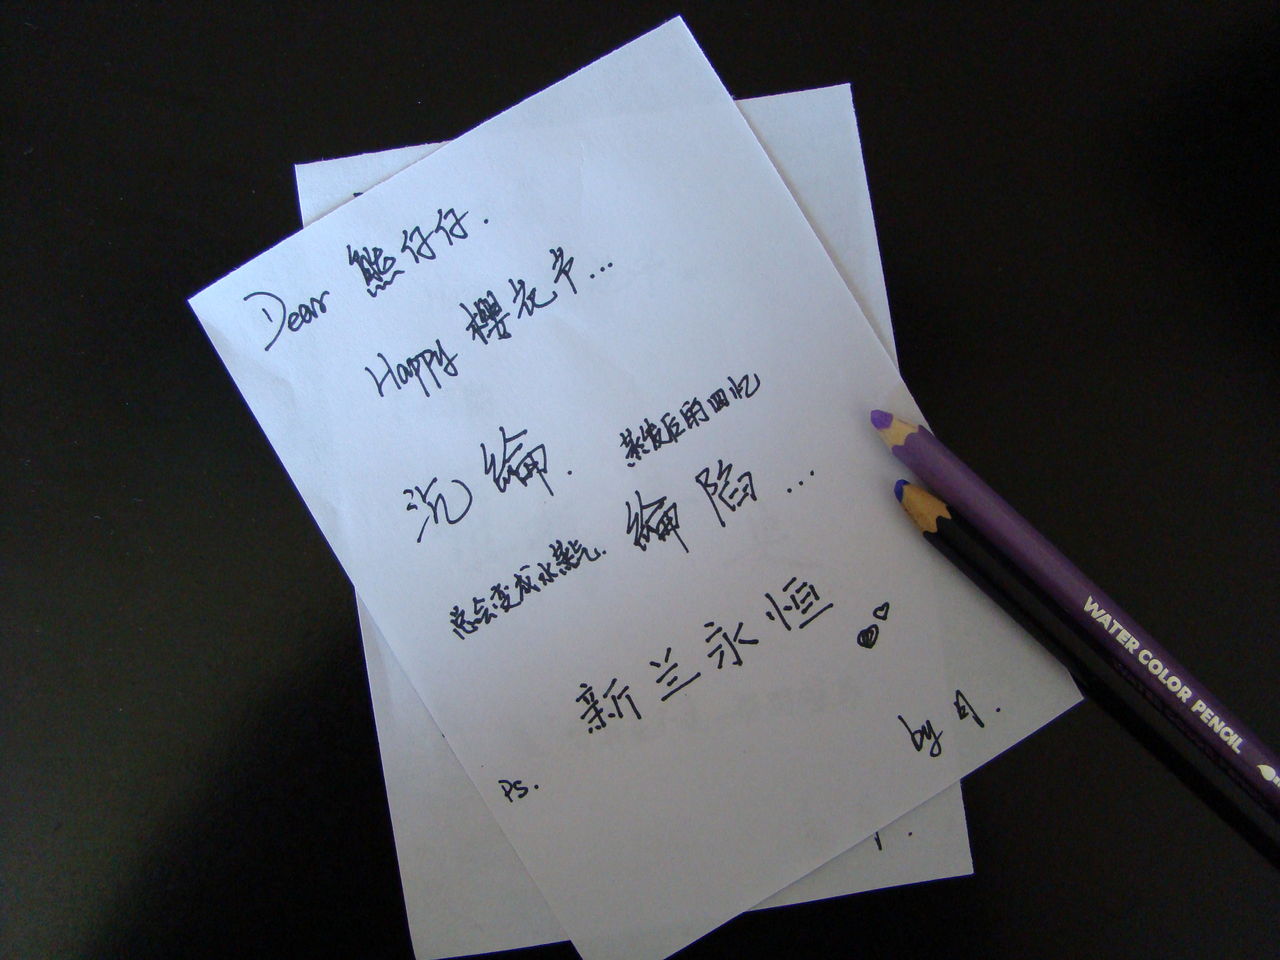 Dear 熊仔仔.
Happy 樱花节...
沉 綸. 蒸发后的回忆
总会变成水蒸气. 綸 陷...
新兰永恒
by 月.
Ps.
WATER COLOR PENCIL